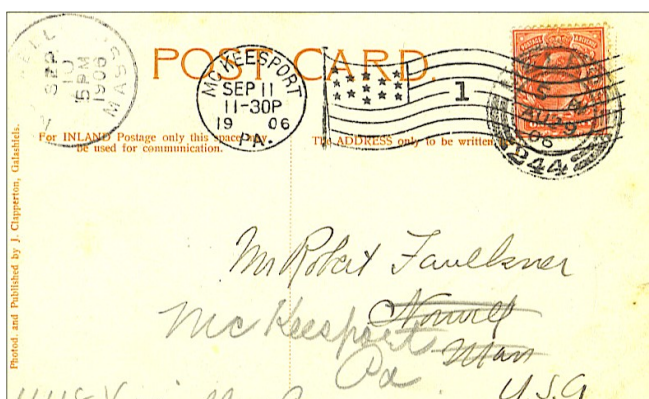 POST CARD.
SEP
10
5 PM
1906
MASS
McKEESPORT
SEP 11
11-30P
19 06
PA.
1
AUG 9
06
244
For INLAND Postage only this space may
be used for communication.
The ADDRESS only to be written
Photod. and Published by J. Clapperton, Galashiels.
Mr Robert Faulkner
Norwell
Mass
McKeesport
Pa
U.S.A